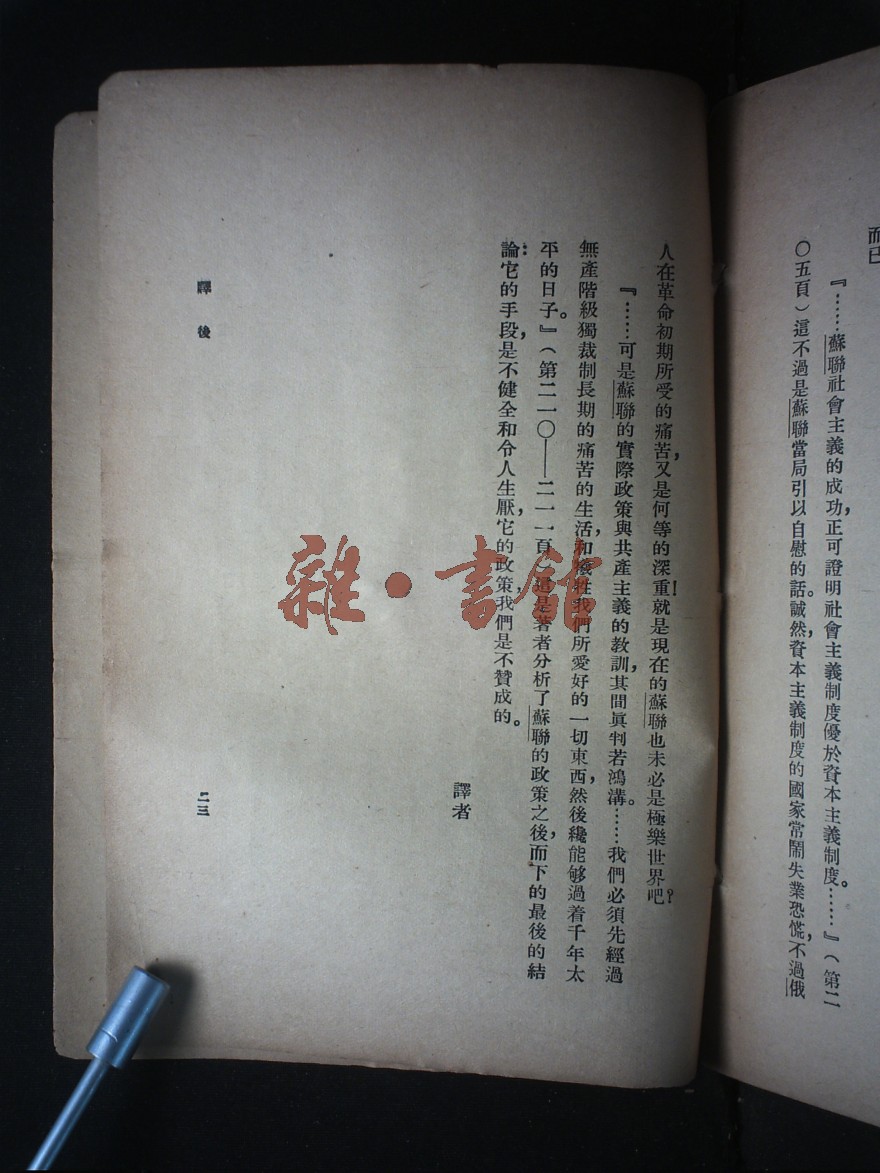 而已
『……蘇聯社會主義的成功，正可證明社會主義制度優於資本主義制度。……』（第二
〇五頁）這不過是蘇聯當局引以自慰的話。誠然，資本主義制度的國家常鬧失業恐慌，不過俄
人在革命初期所受的痛苦，又是何等的深重！就是現在的蘇聯也未必是極樂世界吧？
『……可是蘇聯的實際政策與共產主義的教訓，其間眞判若鴻溝。……我們必須先經過
無產階級獨裁制長期的痛苦的生活，和犧牲我們所愛好的一切東西，然後纔能够過着千年太
平的日子。』（第二一〇——二一一頁）這是著者分析了蘇聯的政策之後，而下的最後的結
論：它的手段，是不健全和令人生厭，它的政策，我們是不贊成的。
譯者
譯後
二三
雜·書館